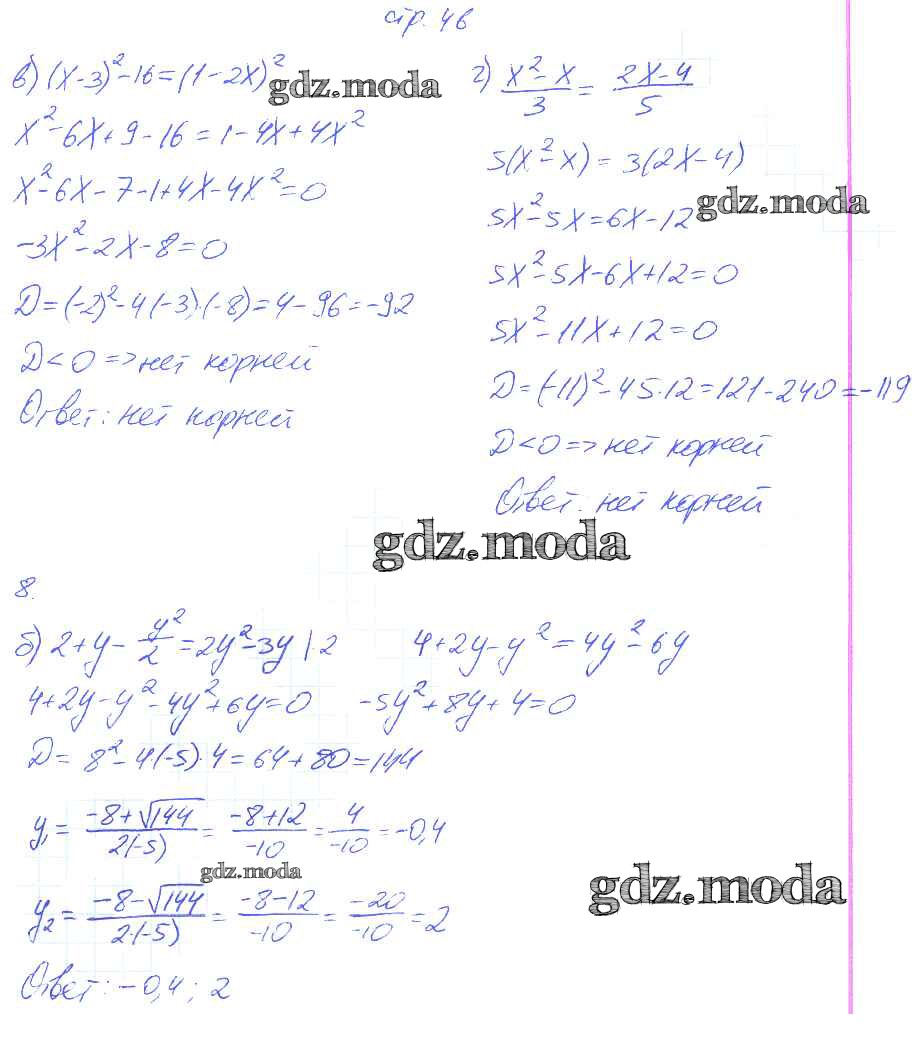 стр. 46
в) (x-3)²-16=(1-2x)²
x²-6x+9-16=1-4x+4x²
x²-6x-7-1+4x-4x²=0
-3x²-2x-8=0
D=(-2)²-4(-3)·(-8)=4-96=-92
D<0=>нет корней
Ответ: нет корней
г) (x²-x)/3 = (2x-4)/5
5(x²-x)=3(2x-4)
5x²-5x=6x-12
5x²-5x-6x+12=0
5x²-11x+12=0
D=(-11)²-45·12=121-240=-119
D<0=>нет корней
Ответ: нет корней
gdz.moda
gdz.moda
gdz.moda
8.
б) 2+y-y²/2=2y²-3y |·2    4+2y-y²=4y²-6y
4+2y-y²-4y²+6y=0    -5y²+8y+4=0
D= 8²-4·(-5)·4=64+80=144
y₁= (-8+√144)/(2(-5)) = (-8+12)/(-10) = 4/(-10) = -0,4
gdz.moda
gdz.moda
y₂= (-8-√144)/(2·(-5)) = (-8-12)/(-10) = (-20)/(-10) = 2
Ответ: -0,4; 2